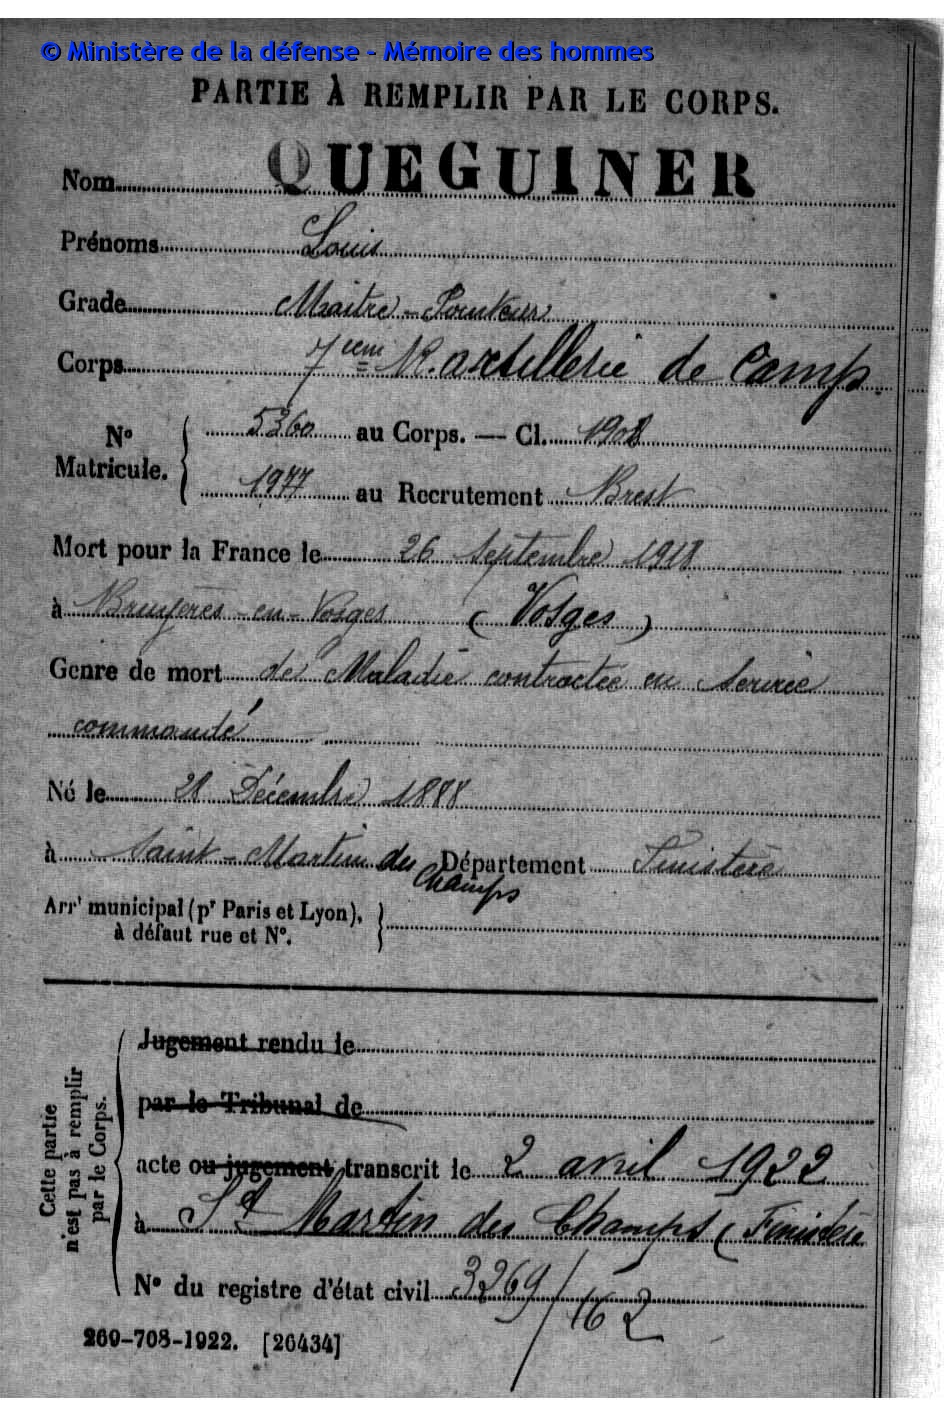 © Ministère de la défense - Mémoire des hommes
PARTIE À REMPLIR PAR LE CORPS.
Nom QUEGUINER
Prénoms Louis
Grade Maître-Pointeur
Corps 7eme R. artillerie de Camp.
No 5360 au Corps. — Cl. 1908
Matricule. 1977 au Recrutement Brest
Mort pour la France le 26 septembre 1918
à Bruyères-en-Vosges (Vosges)
Genre de mort de Maladie contractée en service
commandé
Né le 28 Décembre 1888
à Saint-Martin des Champs Département Finistère
Arrt municipal (pr Paris et Lyon),
à défaut rue et No.
Cette partie
n'est pas à remplir
par le Corps.
Jugement rendu le
par le Tribunal de
acte ou jugement transcrit le 2 avril 1922
à St Martin des Champs (Finistère
No du registre d'état civil 3269/162
260-708-1922. [26434]